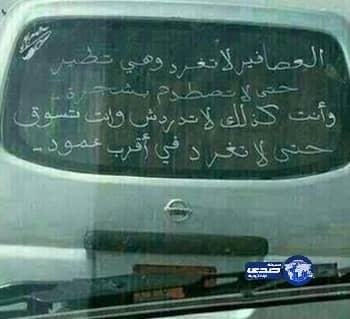 العصافير لا تغرد وهي تطير
حتى لا تصطدم بشجرة..
وأنت كذلك لا تدردش وانت تسوق
حتى لا تغرد في أقرب عمود..
صدى